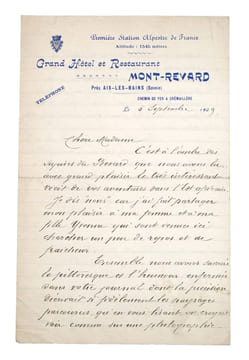 Première Station Alpestre de France
Altitude : 1545 mètres
Grand Hôtel et Restaurant
MONT-REVARD
Près AIX-LES-BAINS (Savoie)
TÉLÉPHONE
CHEMIN DE FER A CRÉMAILLÈRE
Le 5 Septembre 1929
Chère Madame
C'est à l'ombre des
sapins du Revard que nous avons lu
avec grand plaisir le très intéressant
récit de vos aventures dans l'Est africain.
Je dis nous car j'ai fait partager
mon plaisir à ma femme et à ma
fille Yvonne qui sont venues ici
chercher un peu de repos et de
fraîcheur.
Ensemble nous avons savouré
le pittoresque et l'humour enfermés
dans votre journal dont la précision
décrivait si fidèlement les paysages
parcourus, qu'en vous lisant on croyait
voir comme sur une photographie